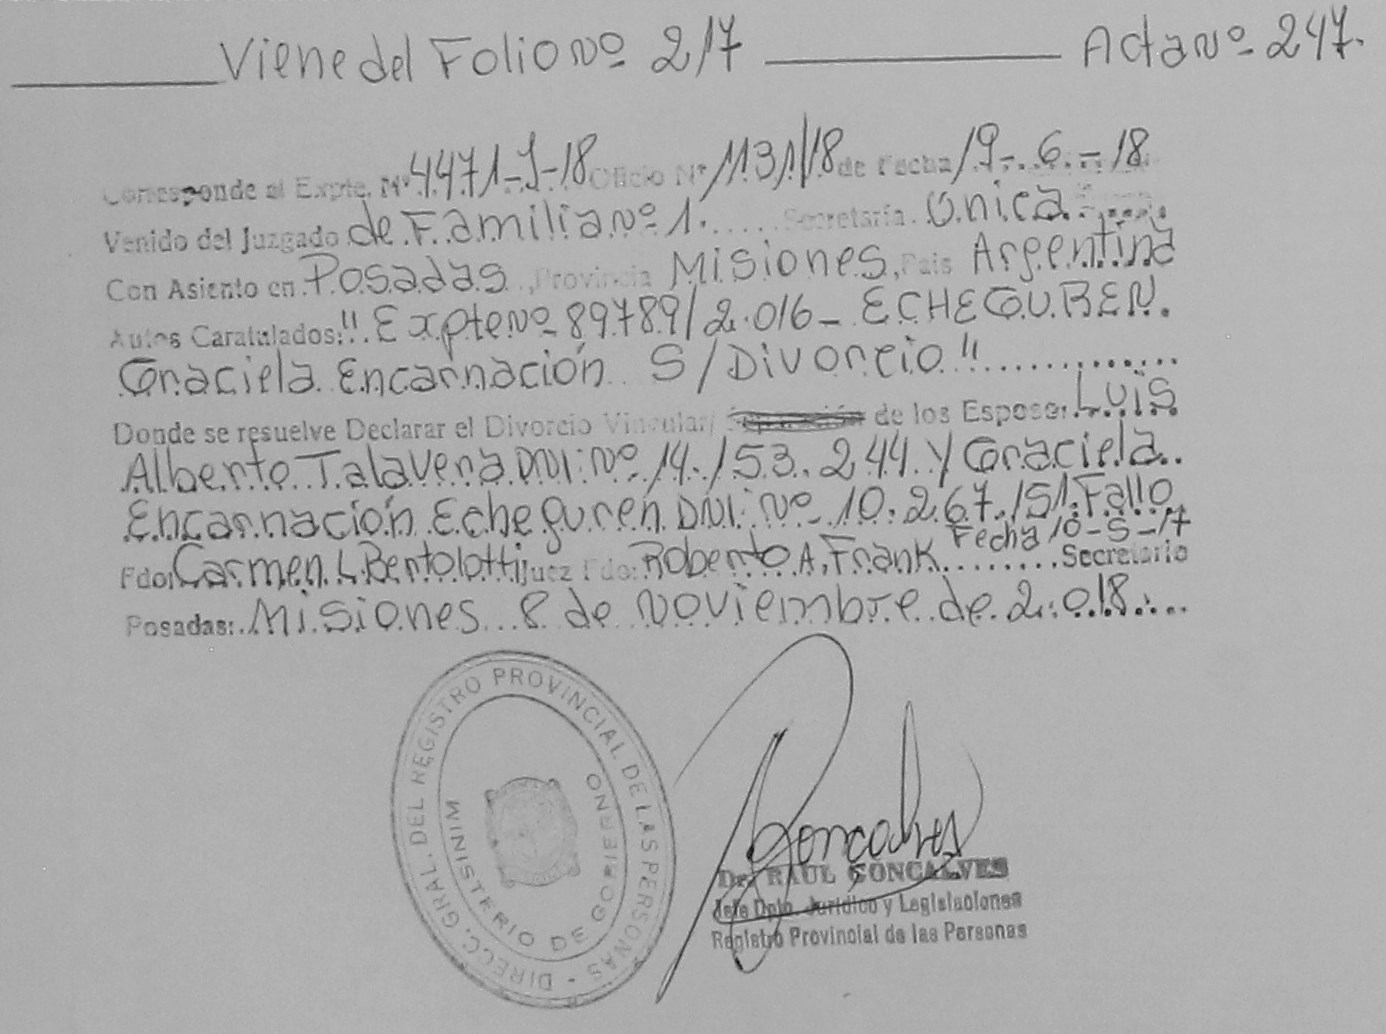 Viene del Folio Nº 217 Acta Nº 247.
Corresponde al Expte. Nº 4471-J-18 Oficio Nº 1131/18 de Fecha 19-6-18
Venido del Juzgado de Familia Nº 1. Secretaría Única
Con Asiento en Posadas, Provincia Misiones, País Argentina
Autos Caratulados: "Expte Nº 89789/2.016 - ECHEGUREN.
Graciela Encarnación S/Divorcio"
Donde se resuelve Declarar el Divorcio Vincular/ de los Esposos: Luis
Alberto Talavera DNI: Nº 14.153.244 y Graciela
Encarnación Echeguren DNI: Nº 10.267.151. Fallo
Fecha 10-5-17
Fdo: Carmen L. Bertolotti Juez Fdo: Roberto A. Frank Secretario
Posadas: Misiones 8 de noviembre de 2.018
DIRECC. GRAL. DEL REGISTRO PROVINCIAL DE LAS PERSONAS -
MINISTERIO DE GOBIERNO
Goncalves
Dr. RAUL GONCALVES
Jefe Dpto. Jurídico y Legislaciones
Registro Provincial de las Personas